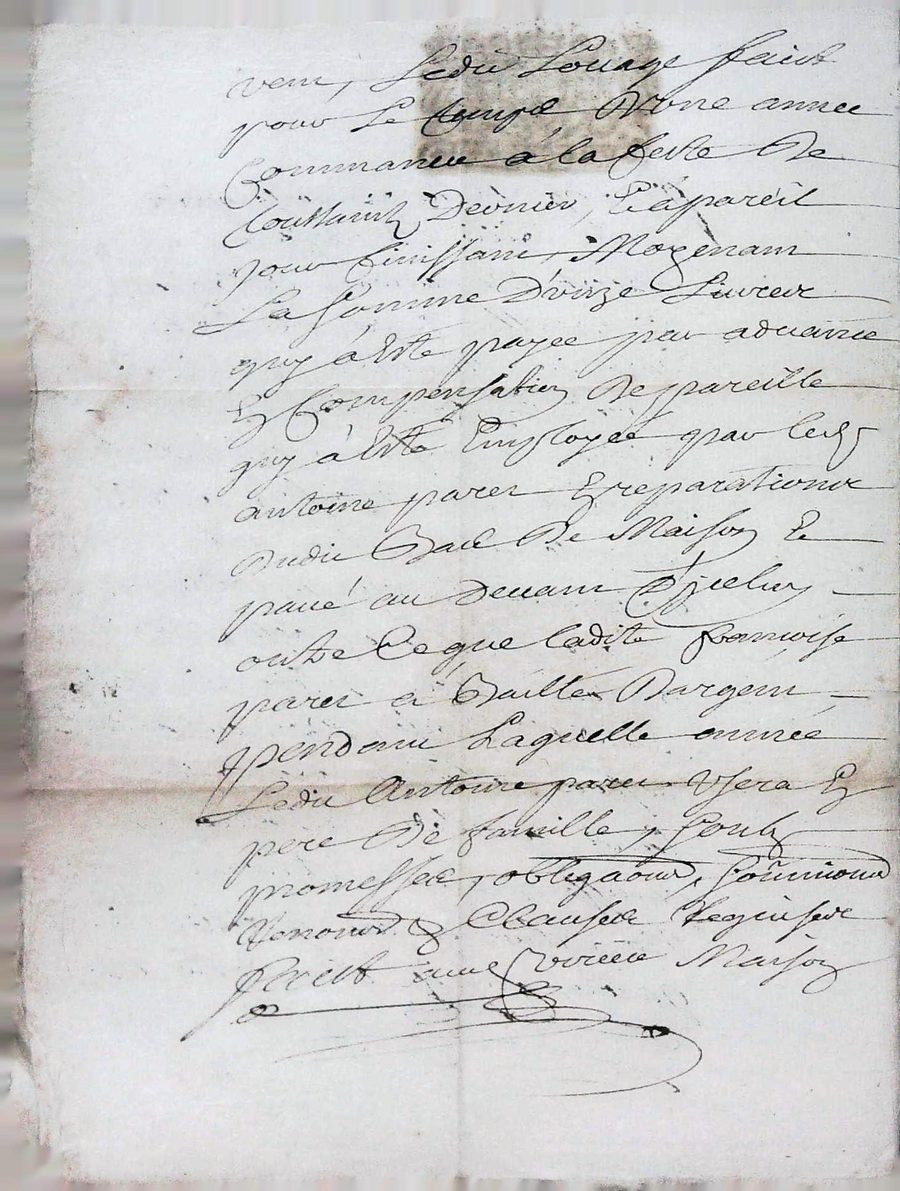 vem, Ledit Louage faict
pour Le temps D'une annee
Commancee á la feste De
Toussainct Dernier, Et á pareil
jour finissant, Moyenant
La somme D'unze Livres
quy á Esté payée par advance
En Compensation De pareille
quy á Esté Employée par led
antoine paret En reparations
Dudit Bail De Maison Et
pavé au Devant D'icelluy
outre Ce que ladite francoise
paret á Baillé Dargent
pendant Laquelle année
Ledit Antoine paret Usera En
pere De famille, soubz
promesses, obligaons, soumions
Renons & Clauses Requises
faict aud Maison